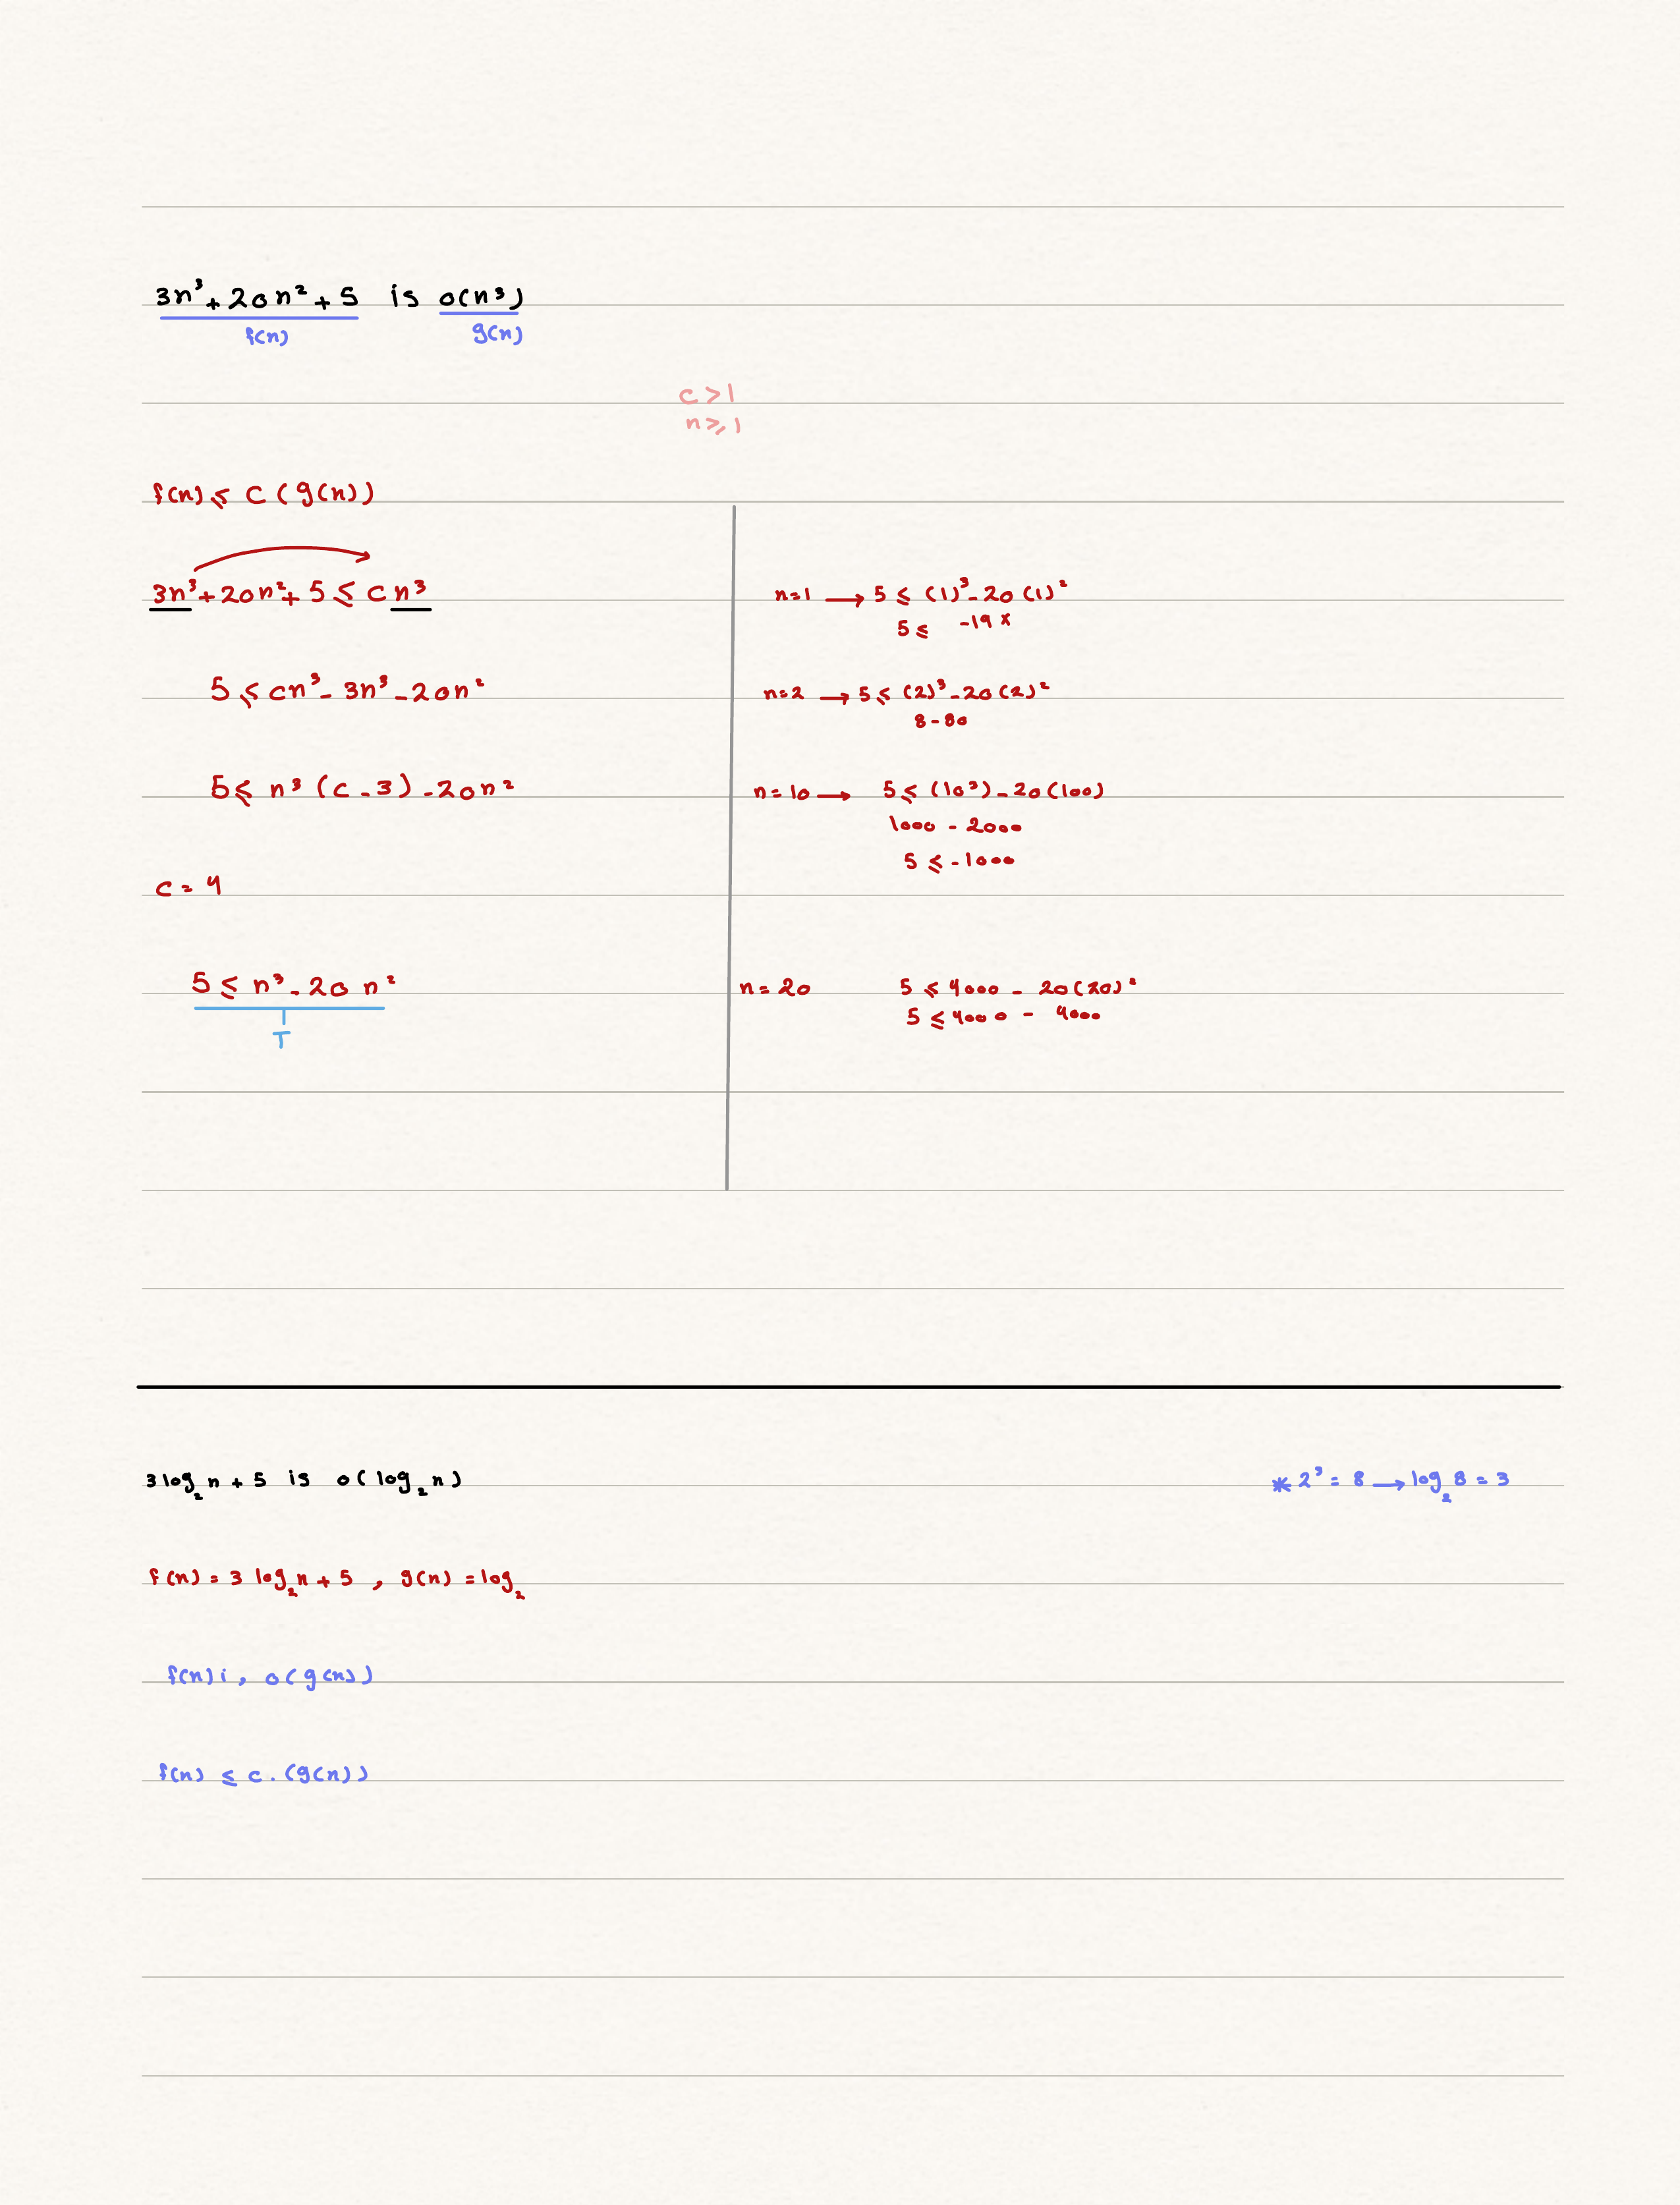 3n³ + 20n² + 5 is o(n³)
f(n) g(n)
c > 1
n ⩾ 1
f(n) ⩽ C (g(n))
3n³ + 20n² + 5 ⩽ c n³
5 ⩽ cn³ - 3n³ - 20n²
5 ⩽ n³ (c - 3) - 20n²
c = 4
5 ⩽ n³ - 20 n²
T
n=1 → 5 ⩽ (1)³ - 20 (1)²
5 ⩽ -19 x
n=2 → 5 ⩽ (2)³ - 20 (2)²
8 - 80
n = 10 → 5 ⩽ (10³) - 20 (100)
1000 - 2000
5 ⩽ -1000
n = 20 5 ⩽ 4000 - 20(20)²
5 ⩽ 4000 - 4000
3 log₂ n + 5 is o( log₂ n )
* 2³ = 8 → log₂ 8 = 3
f(n) = 3 log₂ n + 5 , g(n) = log₂
f(n) i , o( g(n) )
f(n) ⩽ c . (g(n))